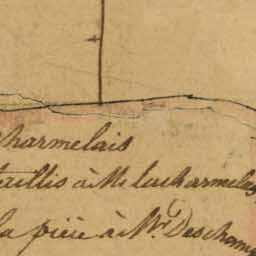 charmelais
taillis à M lacharmelais
la piéce à Mr. Deschamp